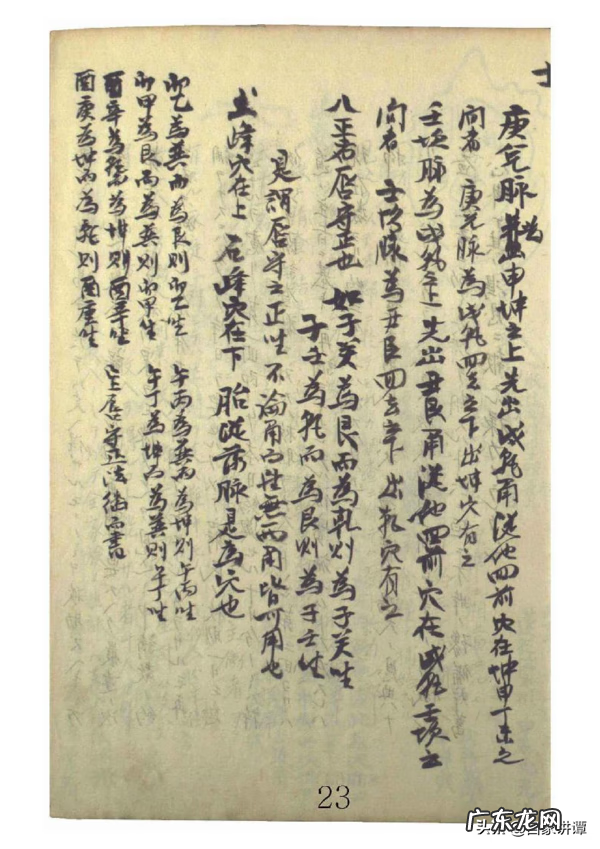 士
庚兌脉為申坤之上先出戌乾甬從他四前穴在坤申丁未之
向者 庚兌脉為戌乾四去之下出坤穴有之
壬坎脉為戌乾之上先出丑艮甬從他四前穴在戌乾壬坎之
向者 壬坎脉為丑艮四去之下出乾穴有之
八正者唇守正也 如子癸為艮而為乾則為子癸坐
子壬為乾而為艮則為子壬坐
是謂唇守之正坐 不論甬而性無而用皆可用也
土峰穴在上 石峰穴在下 胎從落脉是為穴也
卯乙為巽而為艮則卯乙坐 午丙為巽而為坤則午丙坐
卯甲為艮而為巽則卯甲坐 午丁為坤而為巽則午丁坐
酉辛為乾為坤則酉辛坐 定唇守正法俻而書
酉庚為坤而為乾則酉庚坐
23
广东龙网
头条 @百家讲谭